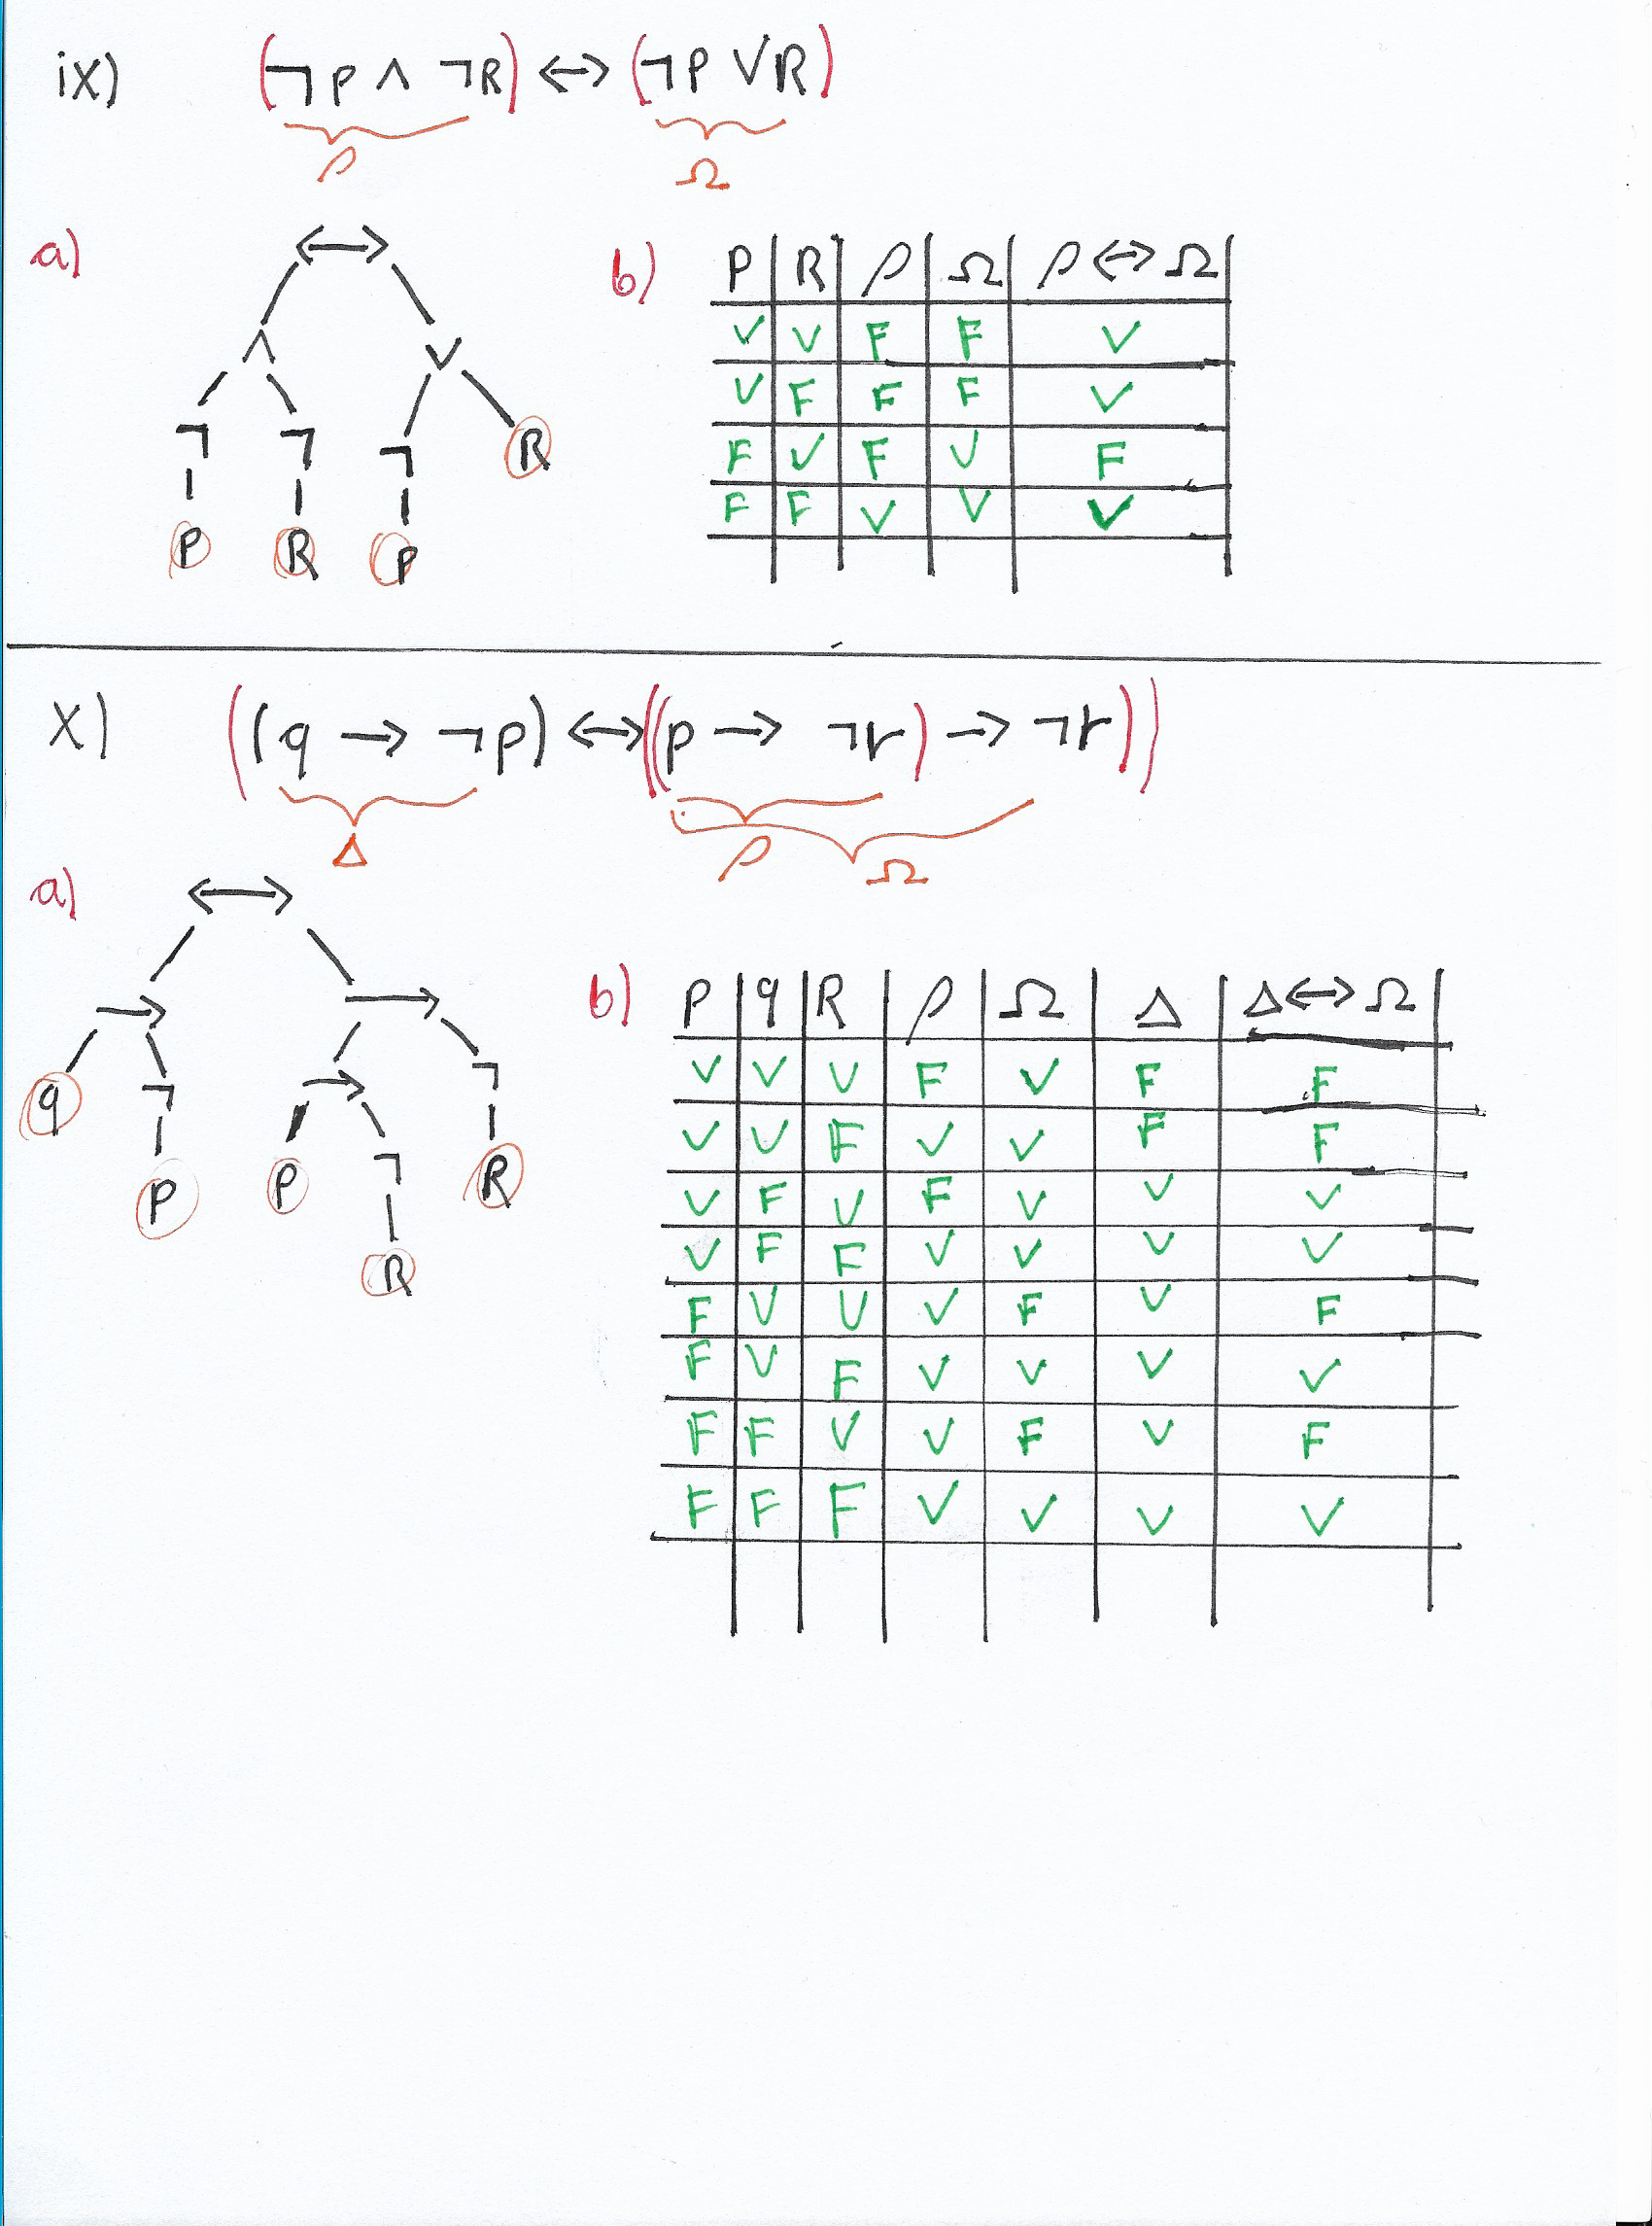 ix) (¬P ∧ ¬R) ↔ (¬P ∨ R)
ρ Ω
a) ↔
∧ ∨
¬ ¬ ¬ R
P R P
b) P R ρ Ω ρ ↔ Ω
V V F F V
V F F F V
F V F V F
F F V V V
x) ((q → ¬p) ↔ ((p → ¬r) → ¬r))
Δ ρ Ω
a) ↔
→ →
q ¬ → ¬
P P ¬ R
R
b) P q R ρ Ω Δ Δ ↔ Ω
V V V F V F F
V V F V V F F
V F V F V V V
V F F V V V V
F V V V F V F
F V F V V V V
F F V V F V F
F F F V V V V